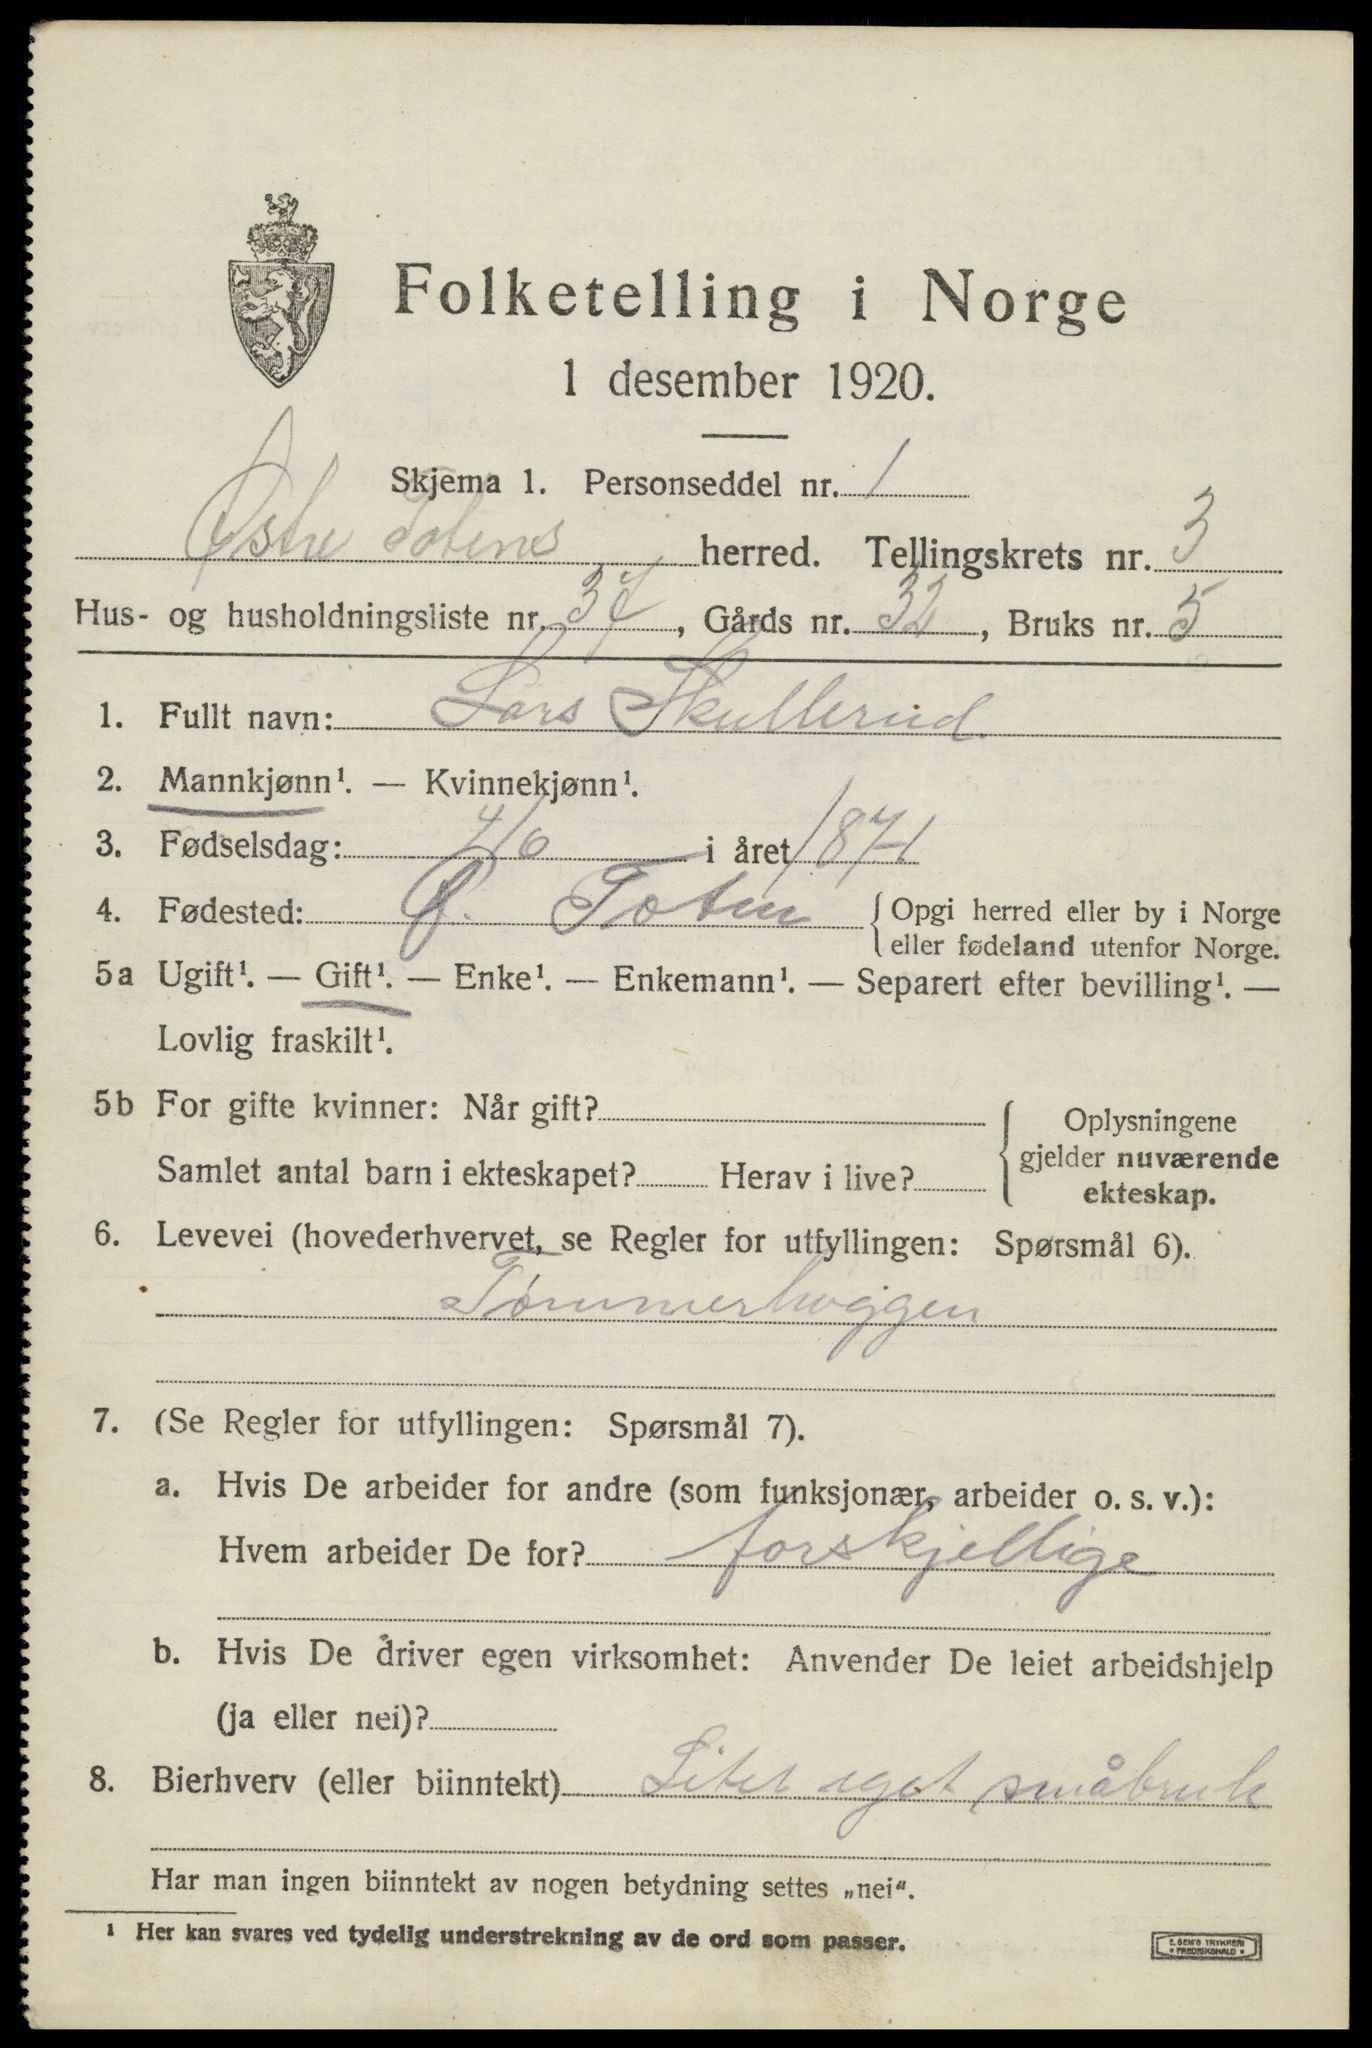 Folketelling i Norge
1 desember 1920.
Skjema 1. Personseddel nr. 1
Østre Totens herred. Tellingskrets nr. 3
Hus- og husholdningsliste nr. 37, Gårds nr. 32, Bruks nr. 5
1. Fullt navn: Lars Skullerud
2. Mannkjønn¹. — Kvinnekjønn¹.
3. Fødselsdag: 4/6 i året 1871
4. Fødested: Ø. Toten {Opgi herred eller by i Norge
eller fødeland utenfor Norge.
5a Ugift¹. — Gift¹. — Enke¹. — Enkemann¹. — Separert efter bevilling¹. —
Lovlig fraskilt¹.
5b For gifte kvinner: Når gift?
Samlet antal barn i ekteskapet? Herav i live?
{ Oplysningene
gjelder nuværende
ekteskap.
6. Levevei (hovederhvervet, se Regler for utfyllingen: Spørsmål 6).
Tømmerhoggen
7. (Se Regler for utfyllingen: Spørsmål 7).
a. Hvis De arbeider for andre (som funksjonær, arbeider o. s. v.):
Hvem arbeider De for? forskjellige
b. Hvis De driver egen virksomhet: Anvender De leiet arbeidshjelp
(ja eller nei)?
8. Bierhverv (eller biinntekt) Litet eget småbruk
Har man ingen biinntekt av nogen betydning settes „nei“.
¹ Her kan svares ved tydelig understrekning av de ord som passer.
E. SEM'S TRYKKERI
• FREDRIKSHALD •